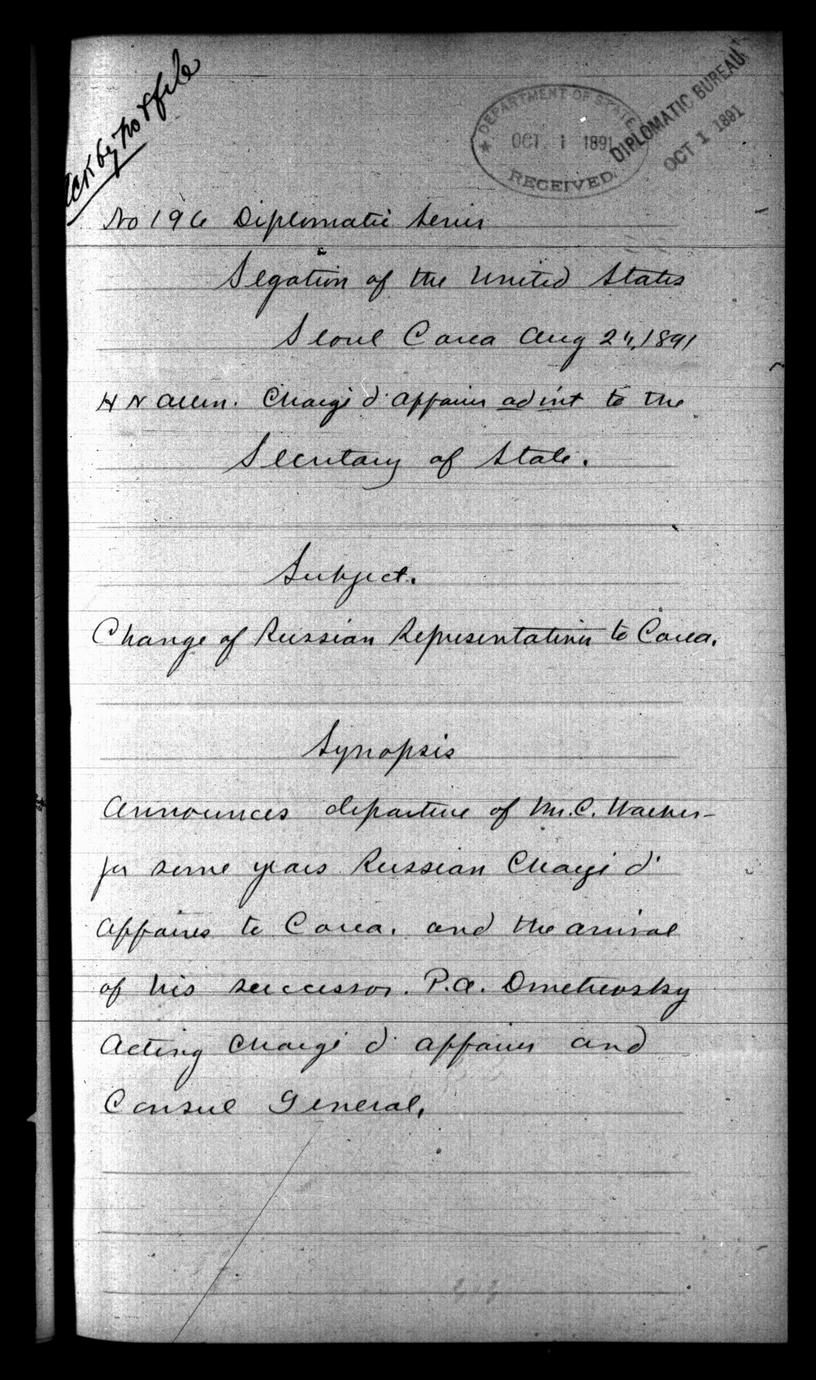 Ack by no & file
DEPARTMENT OF STATE
OCT 1 1891
RECEIVED
DIPLOMATIC BUREAU
OCT 1 1891
No 196 Diplomatic Series
Legation of the United States
Seoul Corea Aug 24, 1891
H N Allen. Chargé d'affaires ad int to the
Secretary of State.
Subject.
Change of Russian Representatives to Corea.
Synopsis
Announces departure of Mr. C. Waeber-
for some years Russian Chargé d'
affaires to Corea. and the arrival
of his successor. P.A. Dmetrevsky
Acting Chargé d'affaires and
Consul General.